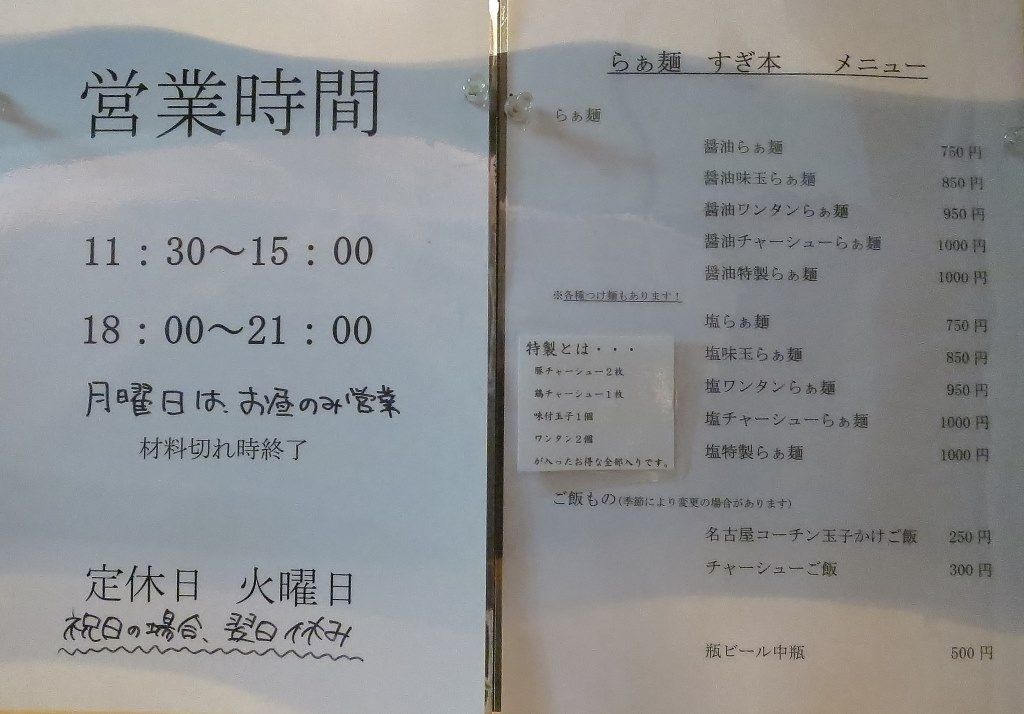 営業時間
11：30～15：00
18：00～21：00
月曜日は、お昼のみ営業
材料切れ時終了
定休日 火曜日
祝日の場合、翌日休み
らぁ麺 すぎ本 メニュー
らぁ麺
醤油らぁ麺 750円
醤油味玉らぁ麺 850円
醤油ワンタンらぁ麺 950円
醤油チャーシューらぁ麺 1000円
醤油特製らぁ麺 1000円
※各種つけ麺もあります！
塩らぁ麺 750円
塩味玉らぁ麺 850円
塩ワンタンらぁ麺 950円
塩チャーシューらぁ麺 1000円
塩特製らぁ麺 1000円
特製とは・・・
豚チャーシュー2枚
鶏チャーシュー1枚
味付玉子1個
ワンタン2個
が入ったお得な全部入りです。
ご飯もの(季節により変更の場合があります)
名古屋コーチン玉子かけご飯 250円
チャーシューご飯 300円
瓶ビール中瓶 500円